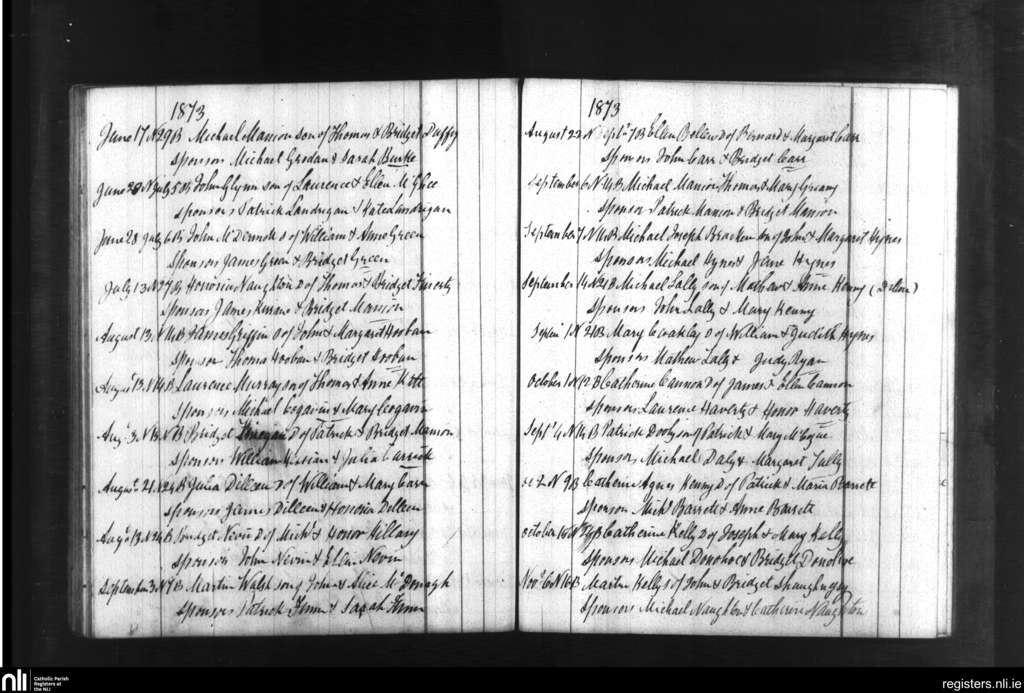 1873
June 17 N 29 B Michael Mannion son of Thomas & Bridget Duffy
Sponsors Michael Grodan & Sarah Burke
June 28 N July 5 B John Glynn son of Laurence & Ellen McGhee
Sponsors Patrick Landrigan & Kate Landrigan
June 28 July 6 B John McDermott s of William & Anne Green
Sponsors James Green & Bridget Green
July 13 N 27 B Honoria Naughton D of Thomas & Bridget
Sponsors James Kirwane & Bridget Mannion
August 13 N 14 B James Griffin s of John & Margaret Hooban
Sponsor Thomas Hooban & Bridget Hooban
Augt 13 N 14 B Laurence Murray son of Thomas & Anne Kett
Sponsors Michael Cogavin & Mary Cogavin
Augt 3 N B Bridget Finegan D of Patrick & Bridget Mannion
Sponsors William & Julia Carrick
August 21 N 24 B Julia Dilleen D of William & Mary Carr
Sponsors James Dilleen & Honoria Dilleen
Augt 13 N 24 B Bridget Nevin D of Michl & Honor Hillary
Sponsors John Nevin & Ellen Nevin
September 3 N 7 B Martin Walsh son of John & Alice McDonagh
Sponsors Patrick Finn & Sarah Finn
1873
August 22 N Sept 7 B Ellen Bellew D of Bernard & Margaret Carr
Sponsors John Carr & Bridget Carr
September 6 N 14 B Michael Mannion Thomas & Mary Greany
Sponsor Patrick Mannion & Bridget Mannion
September 7 N 14 B Michael Joseph Bracken son of John & Margaret Hynes
Sponsors Michael Hynes & Jane Hynes
September 14 N 21 B Michael Lally son of Mathew & Anne Kenny
Sponsors John Lally & Mary Kenny
1 N 21 B Mary Coakley D of William & Judith Hynes
Sponsors Mathew Laly & Judy Ryan
October 1 N 12 B Catherine Cannon D of James & Ellen Cannon
Sponsors Laurence Haverty & Honor Haverty
Sept 4 N 14 B Patrick Dooly son of Patrick & Mary McCque
Sponsors Michael Daly & Margaret Tully
oct 2 N 9 B Catherine Agnes Kenny D of Patrick & Maria Barrett
Sponsors Michl Barrett & Anne Barrett
October 16 N 26 B Catherine Kelly D of Joseph & Mary Kelly
Sponsors Michael Donohoe & Bridget Donohoe
Novr 6 N 16 B Martin Kelly s of John & Bridget Shaughnessy
Sponsors Michael Naughton & Catherine Naughton
nli
Catholic Parish
Registers at
the NLI
registers.nli.ie